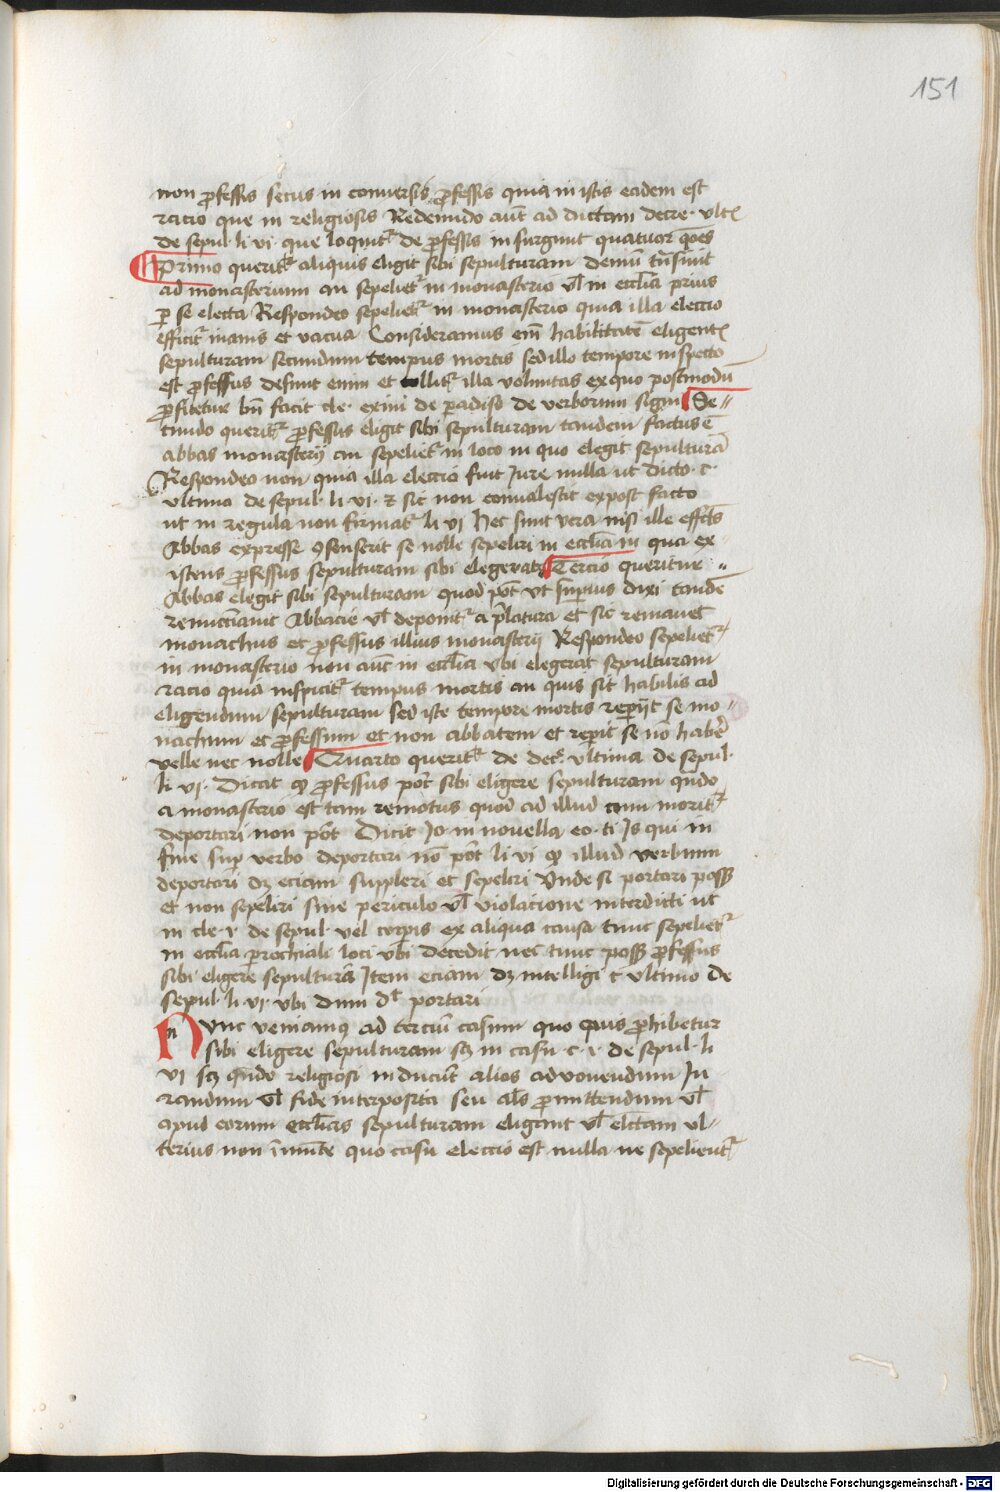 151
non ꝓfessis secus in conuersis ꝓfessis quia in istis eadem est
racio que in religiosis Redeundo aūt ad dictam decre· vltꝭ
de sepul· li vi· que loquit᷑ de ꝓfessis insurgunt quatuor q̄oēs
Primo querit᷑ aliquis eligit sibi sepulturam demū tn̄siuit
ad monasterium an sepeliet᷑ in monasterio vl̄ in eccl̄ia prius
ꝑ se electa Respondeo sepeliet᷑ in monasterio quia illa eleccio
efficit᷑ inanis et vacua Consideramus em̄ habilitatē eligentꝭ
sepulturam secundum tempus mortis sed illo tempore inspecto
est ꝓfessus desinit enim et tollit᷑ illa voluntas ex quo postmodū
ꝓfitetur bn̄ facit cle· exiui de padiso de verborum sign̄ Se=
cundo querit᷑ ꝓfessus eligit sibi sepulturam tandem factus ē
abbas monasterij an sepeliet᷑ in loco in quo elegit sepulturā
Respondeo non quia illa eleccio fuit Jure nulla ut dicto· c·
vltimo de sepul· li vi· ⁊ sic non conualescit ex post facto
ut in regula non firmat᷑ li vj hec sunt vera nisi ille
Abbas expresse ꝯsenserit se nolle sepeliri in eccl̄ia in qua ex-
istens ꝓfessus sepulturam sibi elegerat Tercio queritur =
Abbas elegit sibi sepulturam quod pōt vt sup̄ius dixi tandē
renunciauit Abbacie vl̄ deponit᷑ a p̄latura et sic remanet
monachus et ꝓfessus illius monasterij Respondeo sepeliet᷑
in monasterio non aūt in eccl̄ia vbi elegerat sepulturam
racio quia inspicit᷑ tempus mortis an quis sit habilis ad
eligendum sepulturam sed iste tempore mortis repijt se mo=
nachum et ꝓfessum et non abbatem et repit se nō habēre
velle nec nolle Quarto querit᷑ de decr̄ vltima de sepul·
li vj· Dicat qꝫ ꝓfessus pōt sibi eligere sepulturam qn̄do
a monasterio est tam remotus quod ad illud cum morit᷑
deportari non pōt Dicit Jo· in nouella eo· ti Is qui in
fine sup̄ verbo deportari nō pōt li vi qꝫ illud verbum
deportari dꝫ eciam suppleri et sepeliri Vnde si portari possꝫ
et non sepeliri sine periculo vl̄ violatione interdicti ut
in cle· i· de sepul· vel corpis ex aliqua causa tunc sepeliet᷑
in eccl̄ia ꝑrochiali loci vbi decedit nec tunc possꝫ ꝓfessus
sibi eligere sepulturā Item eciam dꝫ intelligi c· vltimo de
sepul· li· vj· vbi dum dꝭ portari
Nunc veniamꝰ ad terciū casum quo quis ꝓhibetur
sibi eligere sepulturam sꝫ in casu c· i· de sepul· li
vj sꝫ qn̄do religiosi inducūt alios ad vouendum Ju
randum vl̄ fide interposita seu al̄s ꝓmittendum vl̄
apud eorum eccl̄ias sepulturam eligant vl̄ elc̄tam vl=
terius non īmutē quo casu eleccio est nulla ne sepelient᷑